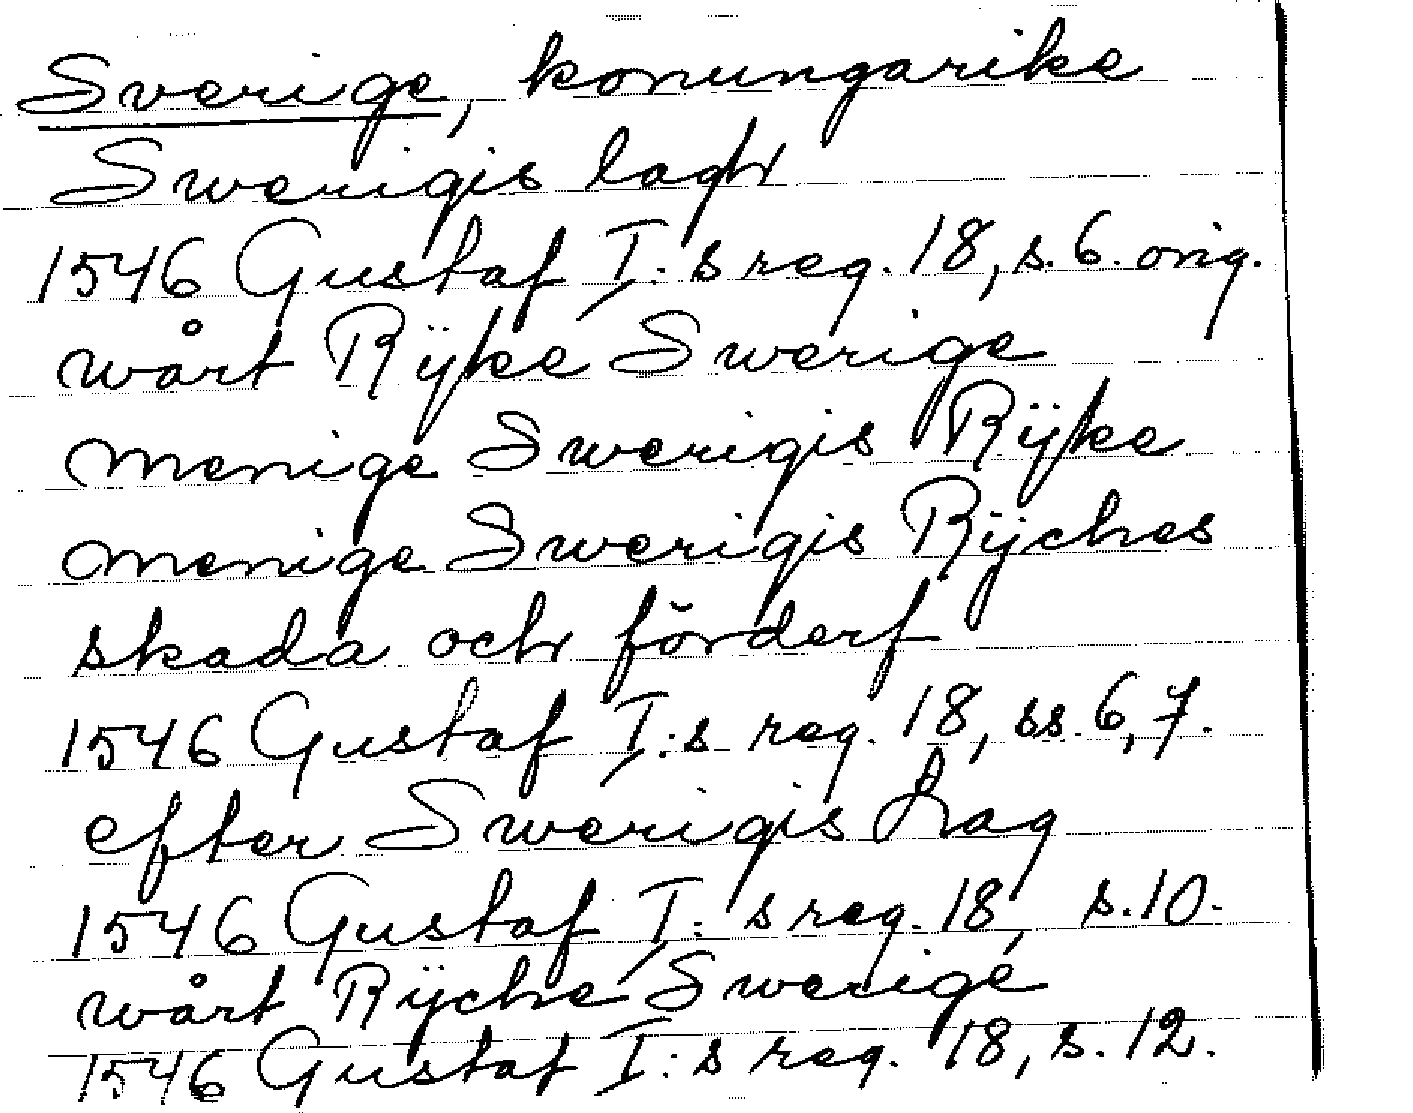 Sverige, konungarike
Swerigis lagh
1546 Gustaf I:s reg. 18, s. 6. orig.
wårt Rÿke Swerige
menige Swerigis Rÿke
menige Swerigis Rÿches
skada och förderf
1546 Gustaf I:s reg. 18, ss. 6, 7.
efter Swerigis Lag
1546 Gustaf I:s reg. 18, s. 10.
wårt Rÿche Swerige
1546 Gustaf I:s reg. 18, s. 12.